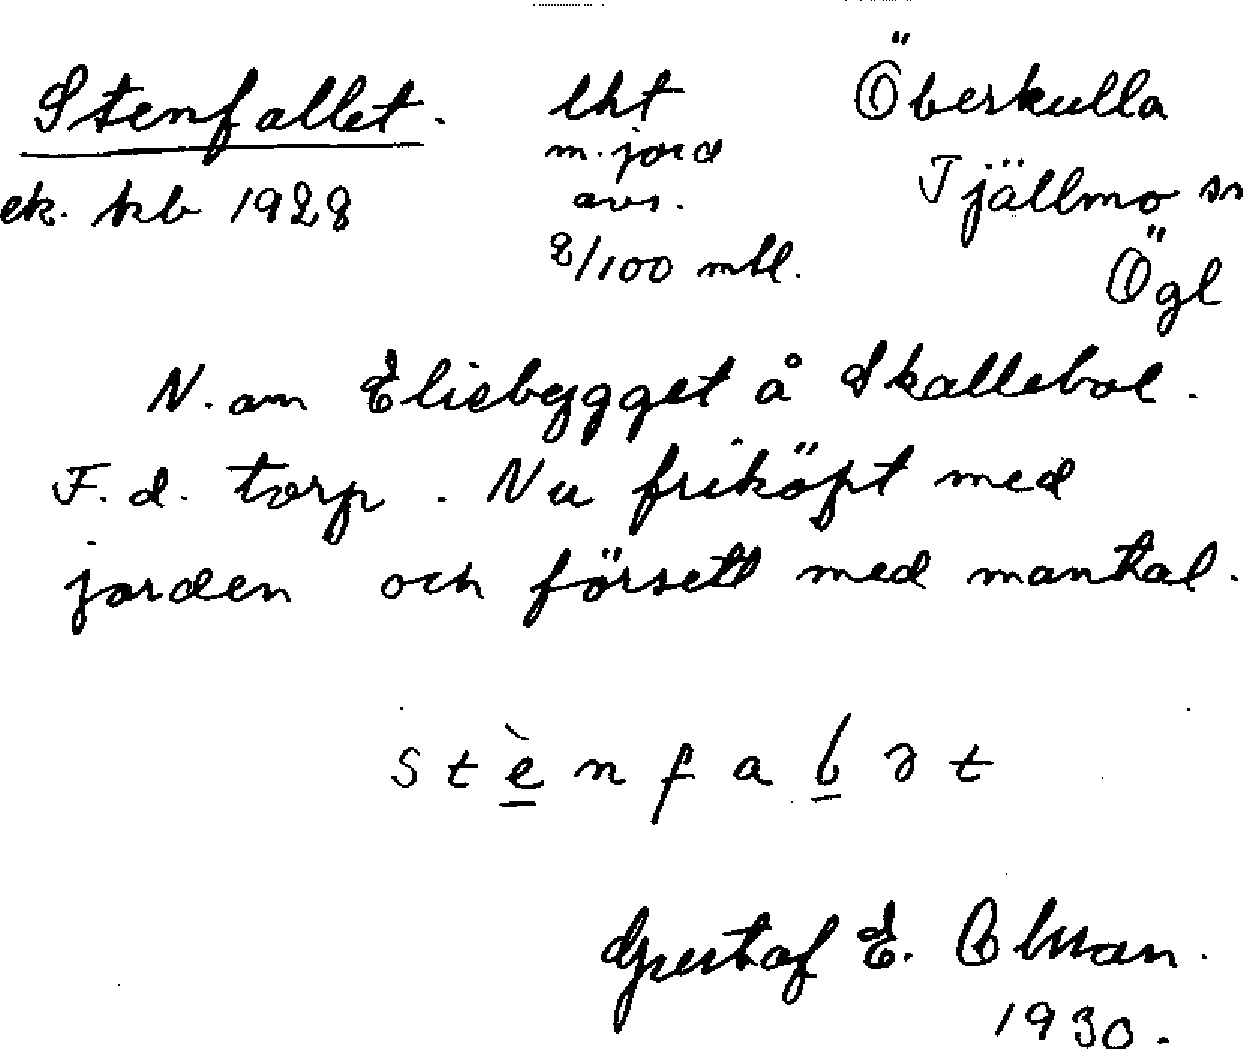 Stenfallet. lht Öberkulla
m. jord Tjällmo sn
ek. kb 1928 avs.
8/100 mtl. Ögl
N. om Elisbygget å Skallebol.
F. d. torp. Nu friköpt med
jorden och försett med mantal.
s t è n f a l ə t
Gustaf E. Olsson.
1930.